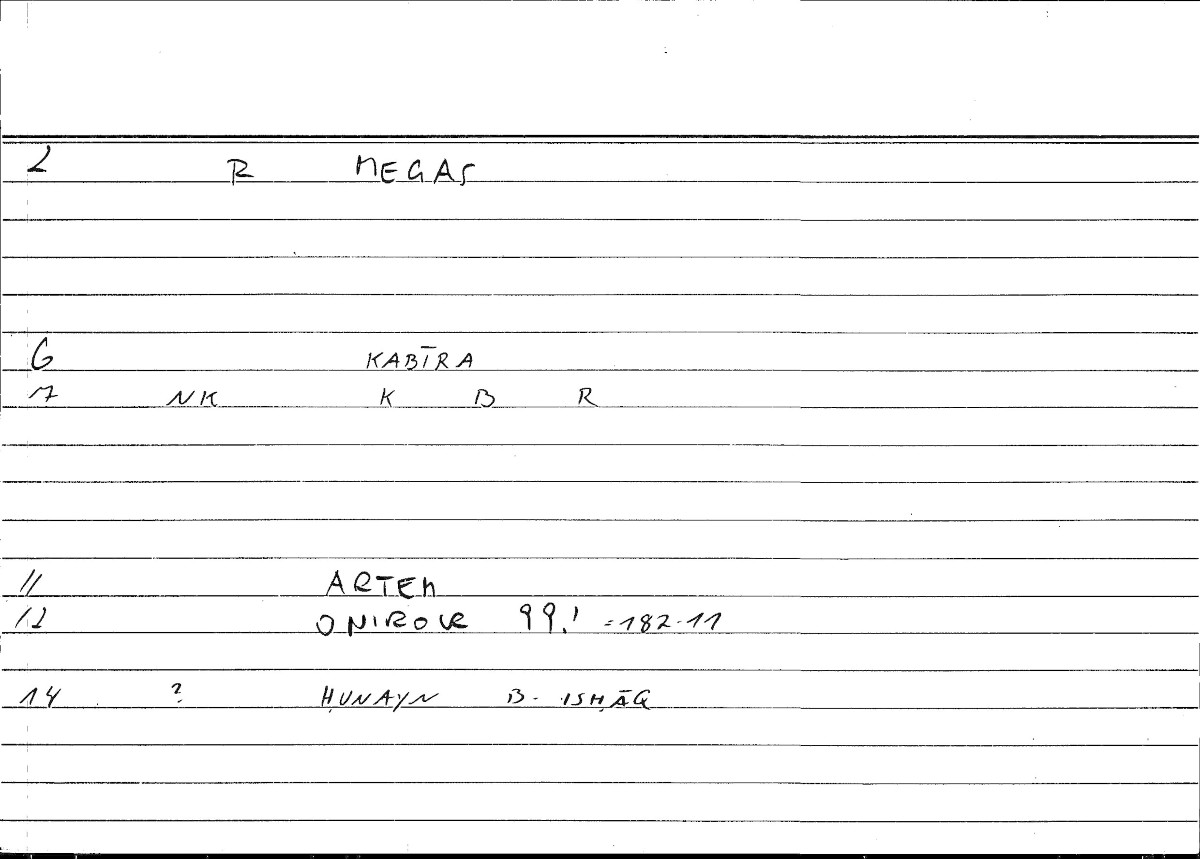 2 R MEGAS
6 KABĪRA
7 NK K B R
11 ARTEM
12 ONIROCR 99.1 =182.11
14 ? ḤUNAYN B. ISḤĀQ